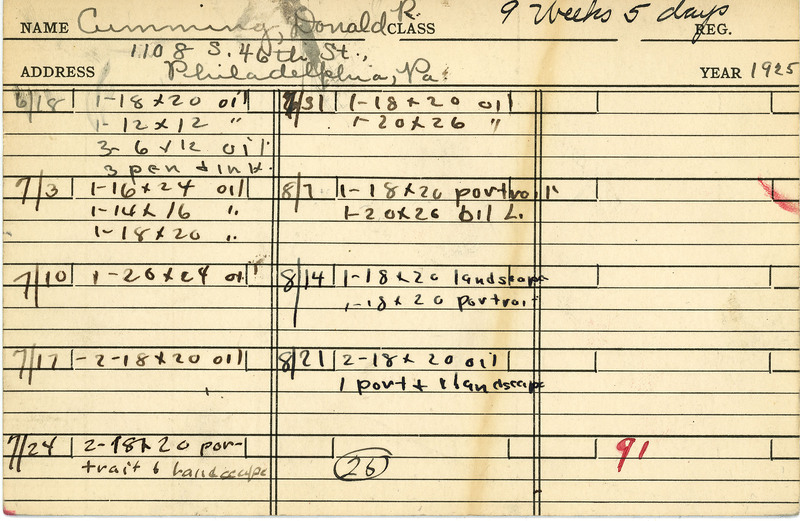 NAME Cumming, Donald R. CLASS 9 Weeks 5 days REG.
1108 S. 46th St.,
ADDRESS Philadelphia, Pa. YEAR 1925
6/18 1-18x20 oil
1-12x12 "
3-6x12 oil
3 pen + ink.
7/3 1-16x24 oil
1-14x16 "
1-18x20 "
7/10 1-20x24 oil
7/17 -2-18x20 oil
7/24 2-18x20 por-
trait & landscape
7/31 1-18x20 oil
1-20x26 "
8/7 1-18x20 portrait
1-20x26 oil L.
8/14 1-18x20 landscape
1-18x20 portrait
8/21 2-18x20 oil
1 port + 1 landscape
26
91